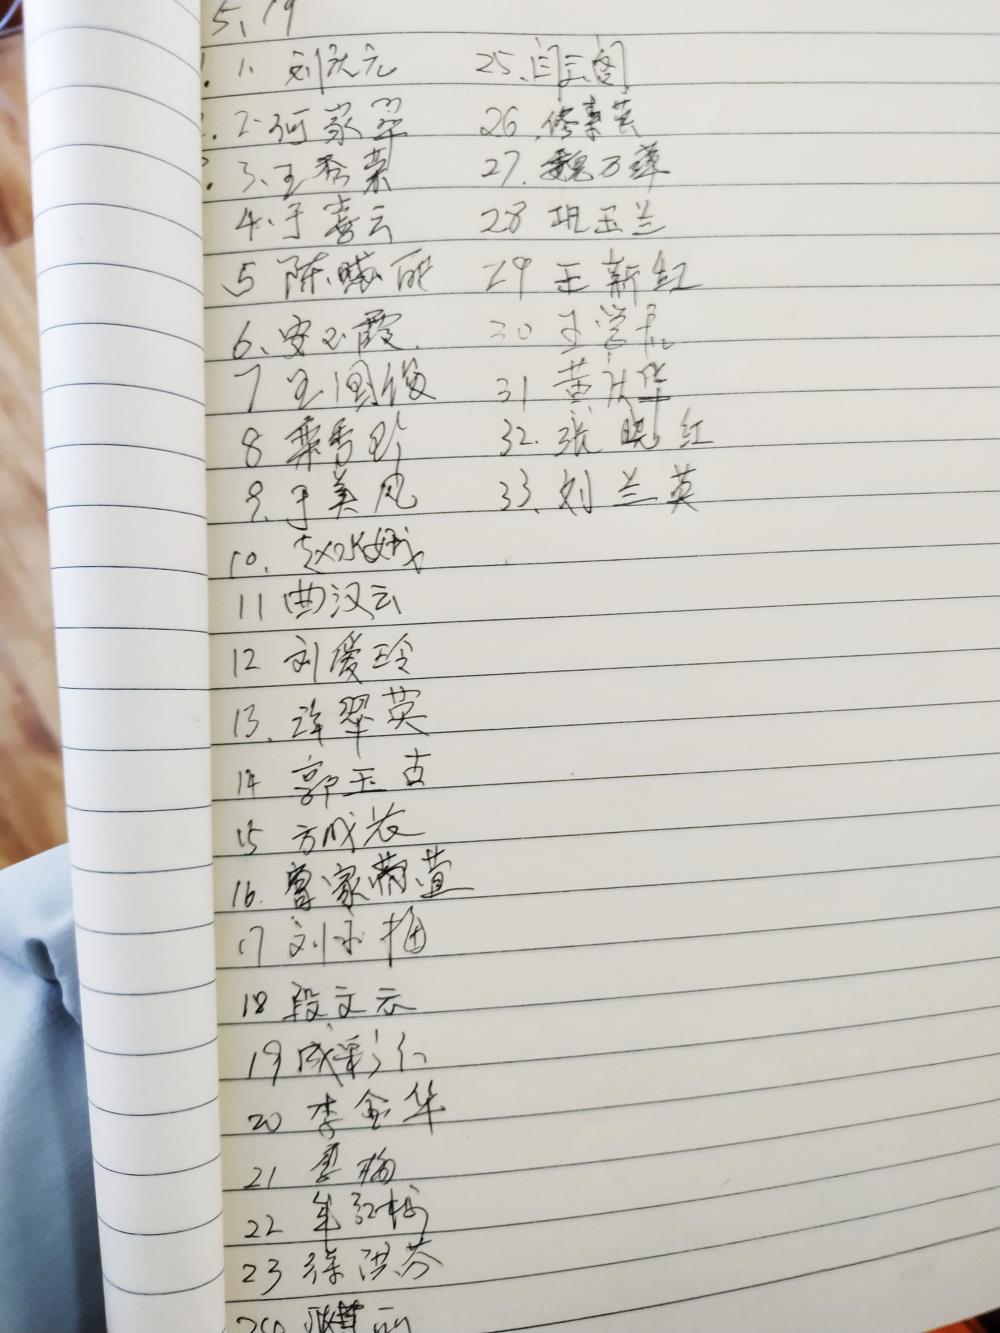 5、19
1、刘庆元
2、何家翠
3、王秀荣
4、于喜云
5 陈晓丽
6、安玉霞.
7 王国俊
8 栗秀珍
9、于美凤
10、赵冰娥
11 曲汉云
12 刘爱玲
13、许翠英
14 郭玉吉
15 方成农
16、曾家萱
17 刘小梅
18 段文云
19 成彩仁
20 李金华
21 李梅
22 牟红梅
23 徐洪芬
24
25、闫兰阁
26、
27、魏万萍
28 巩玉兰
29 王新红
30 王学礼
31 黄庆华
32、张晓红
33、刘兰英